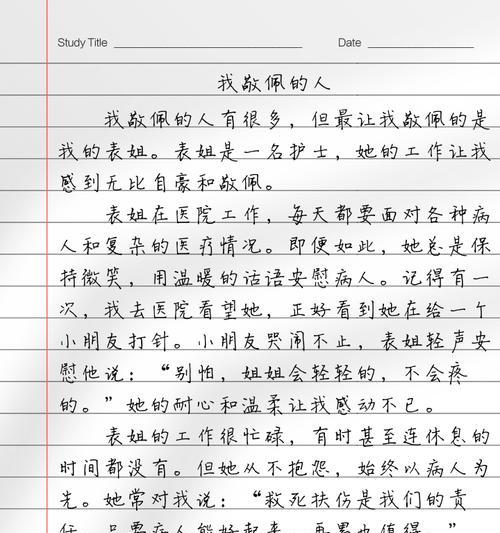 Study Title
Date
我敬佩的人
我敬佩的人有很多，但最让我敬佩的是
我的表姐。表姐是一名护士，她的工作让我
感到无比自豪和敬佩。
表姐在医院工作，每天都要面对各种病
人和复杂的医疗情况。即便如此，她总是保
持微笑，用温暖的话语安慰病人。记得有一
次，我去医院看望她，正好看到她在给一个
小朋友打针。小朋友哭闹不止，表姐轻声安
慰他说：“别怕，姐姐会轻轻的，不会疼
的。”她的耐心和温柔让我感动不已。
表姐的工作很忙碌，有时甚至连休息的
时间都没有。但她从不抱怨，始终以病人为
先。她常对我说：“救死扶伤是我们的责
任，只要病人能好起来，再累也值得。”